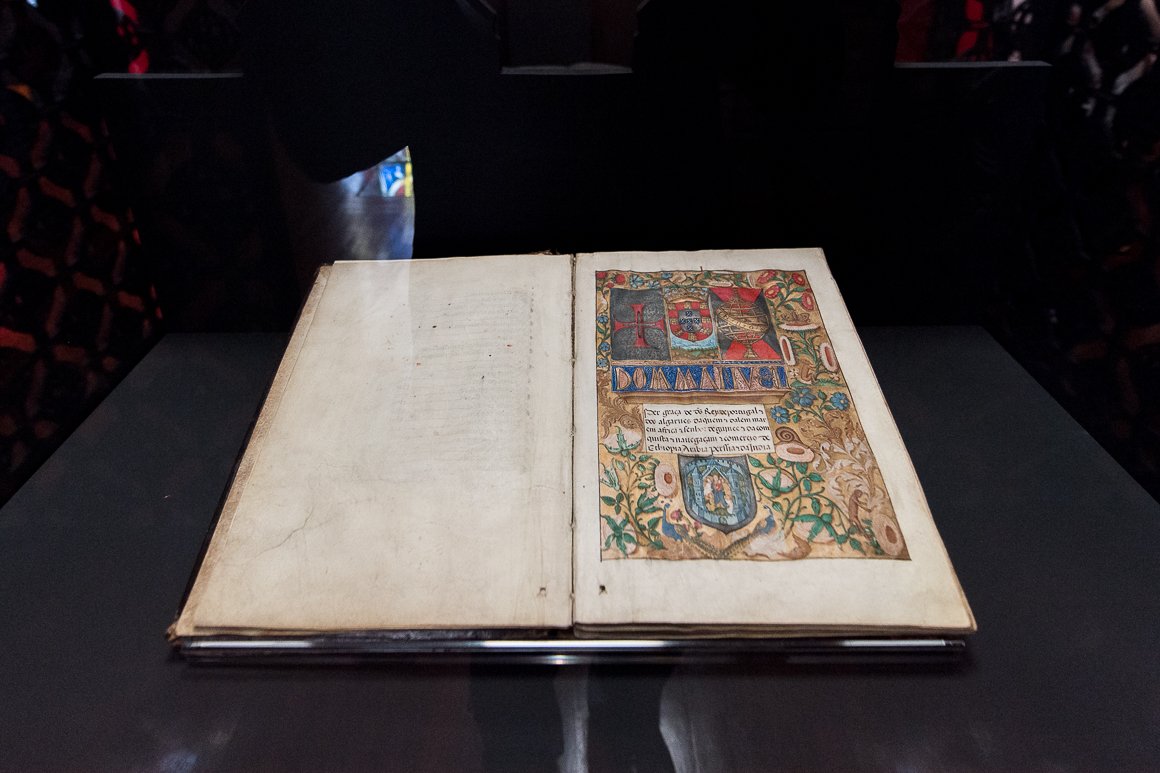 DOM MANVEL
Per graça de ds Rey de portugal ⁊
dos algarues daquem ⁊ dalem mar
em africa ⁊ senhor de guinee ⁊ da com
quista ⁊ nauegaçam ⁊ comerçio de
Ethiopia Arabia persia ⁊ da India